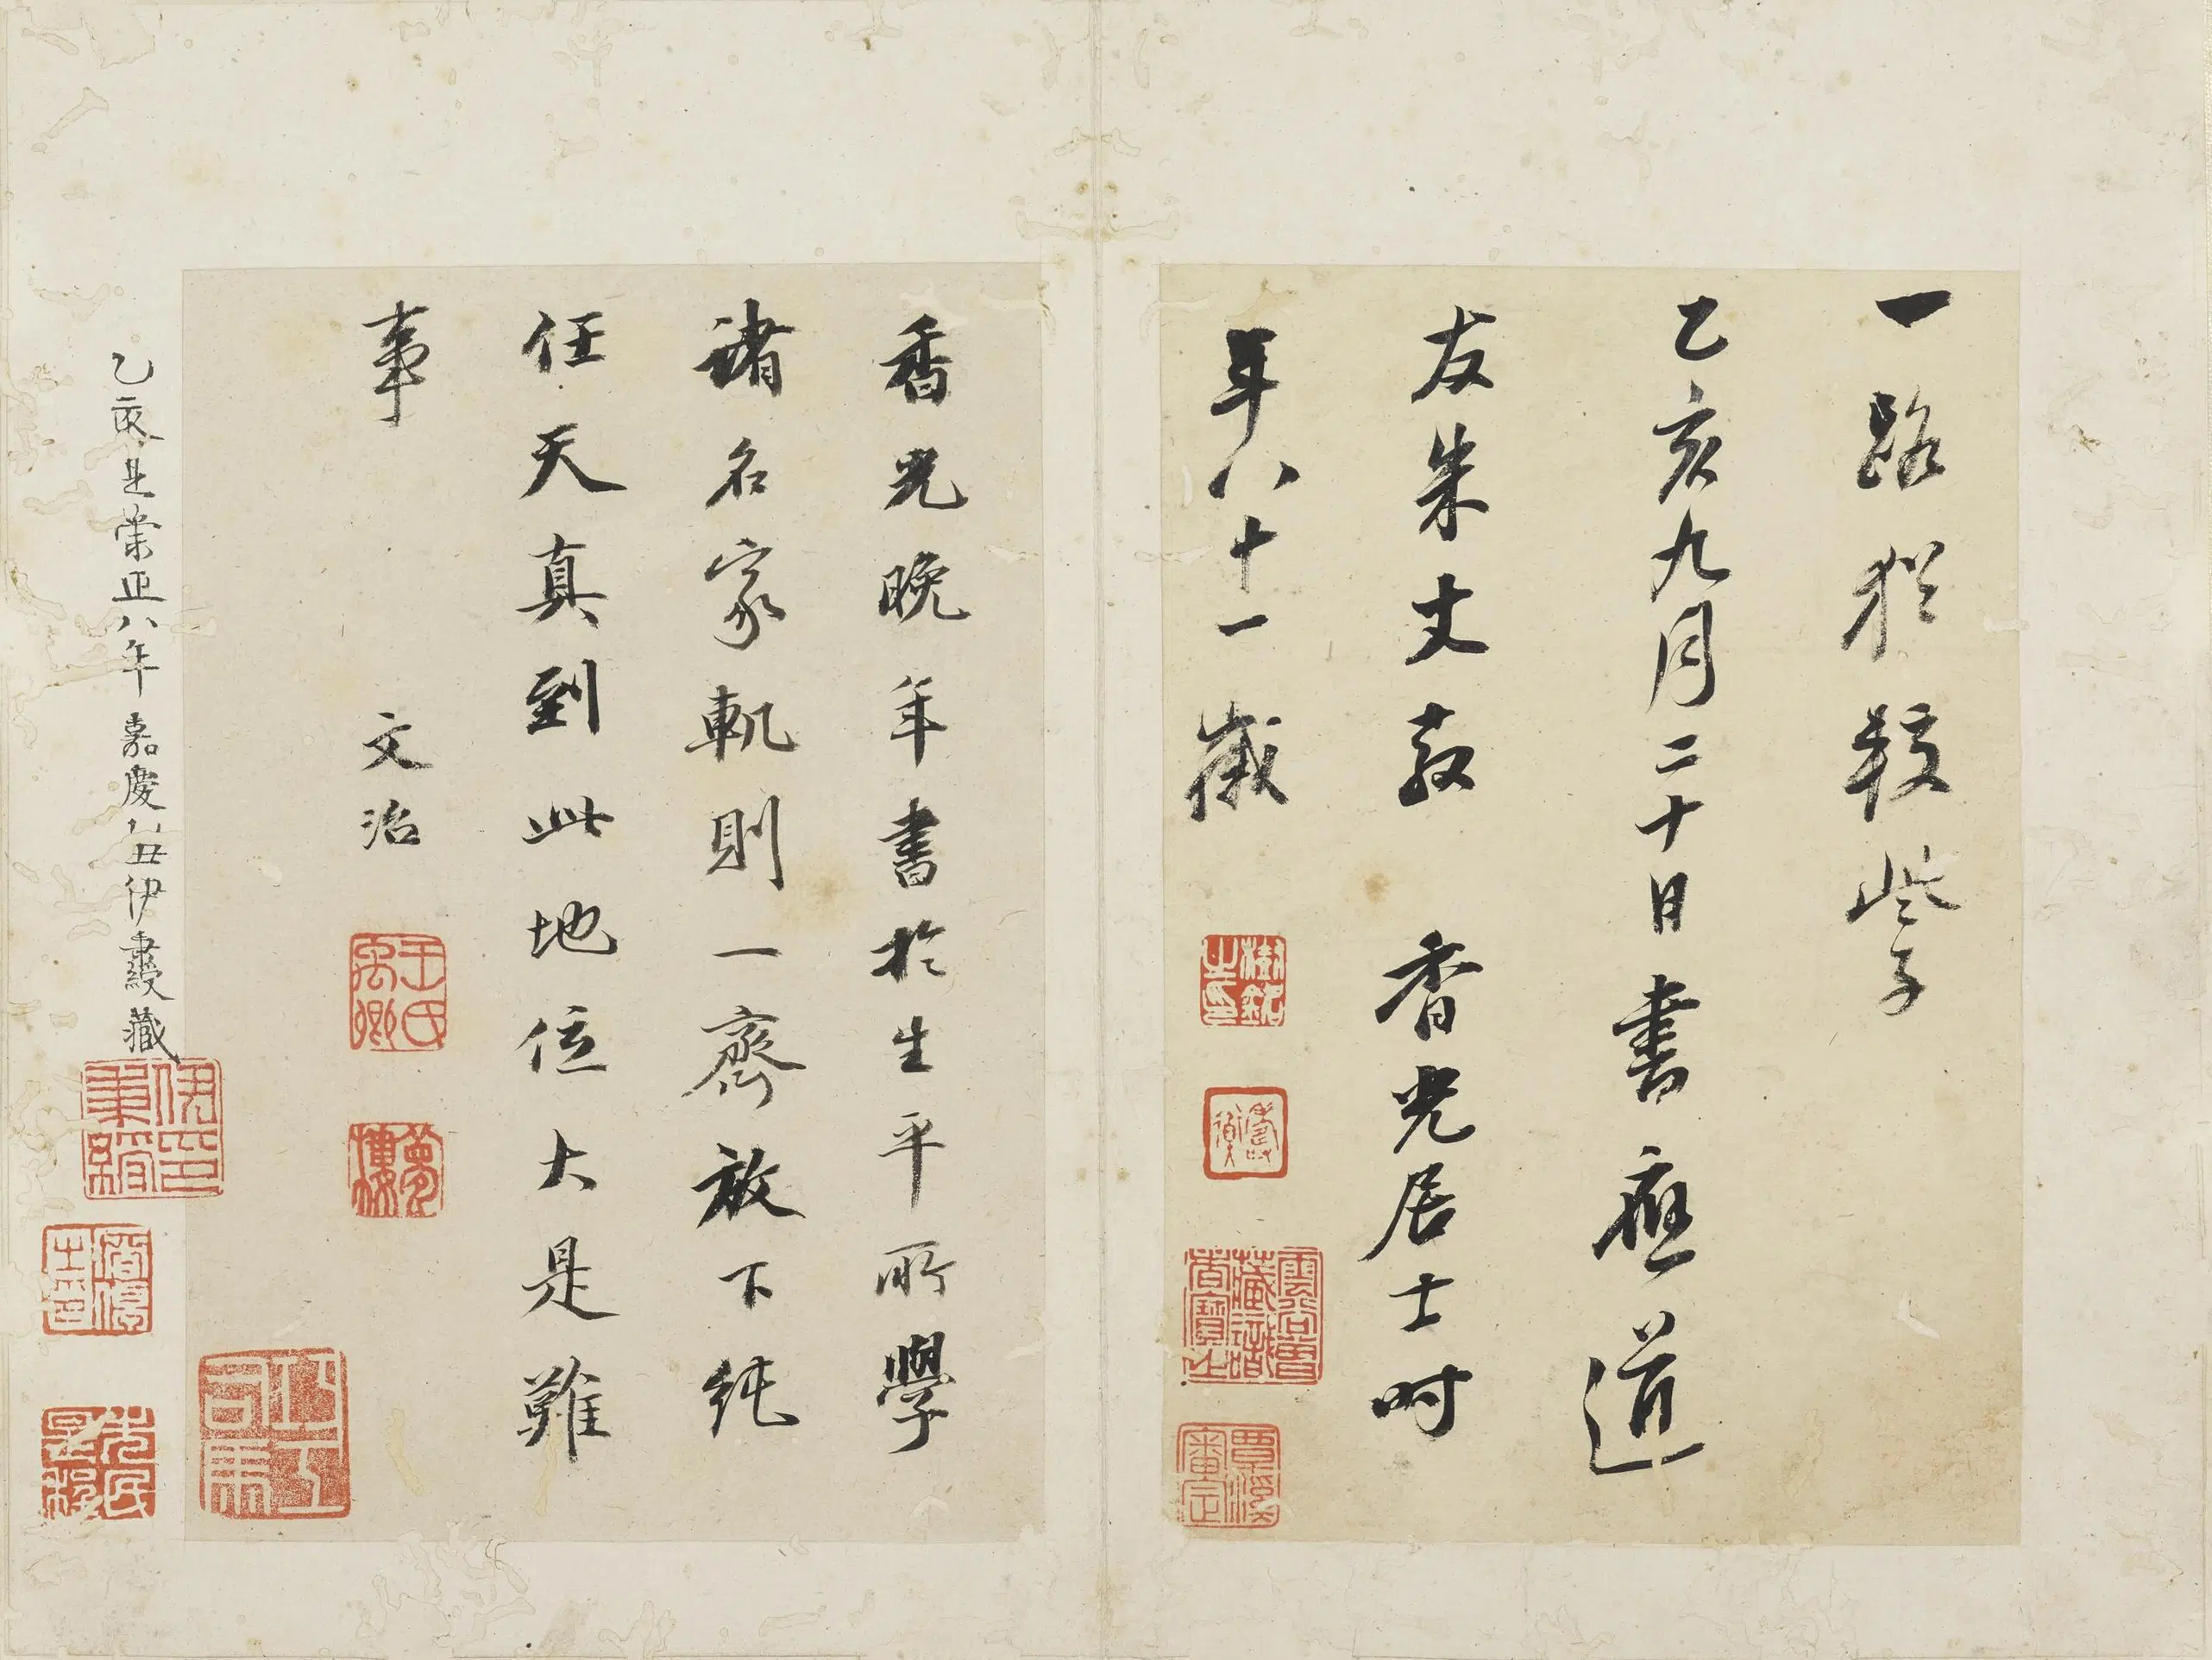 一路猶較些子
乙亥九月二十日書應道
友朱丈教 香光居士時
年八十一歲
香光晚年書於生平所學
諸名家軌則一齊放下純
任天真到此地位大是難
事 文治
王氏禹卿
夢樓
乙亥是崇正八年 嘉慶乙丑伊墨卿藏
伊秉綬印